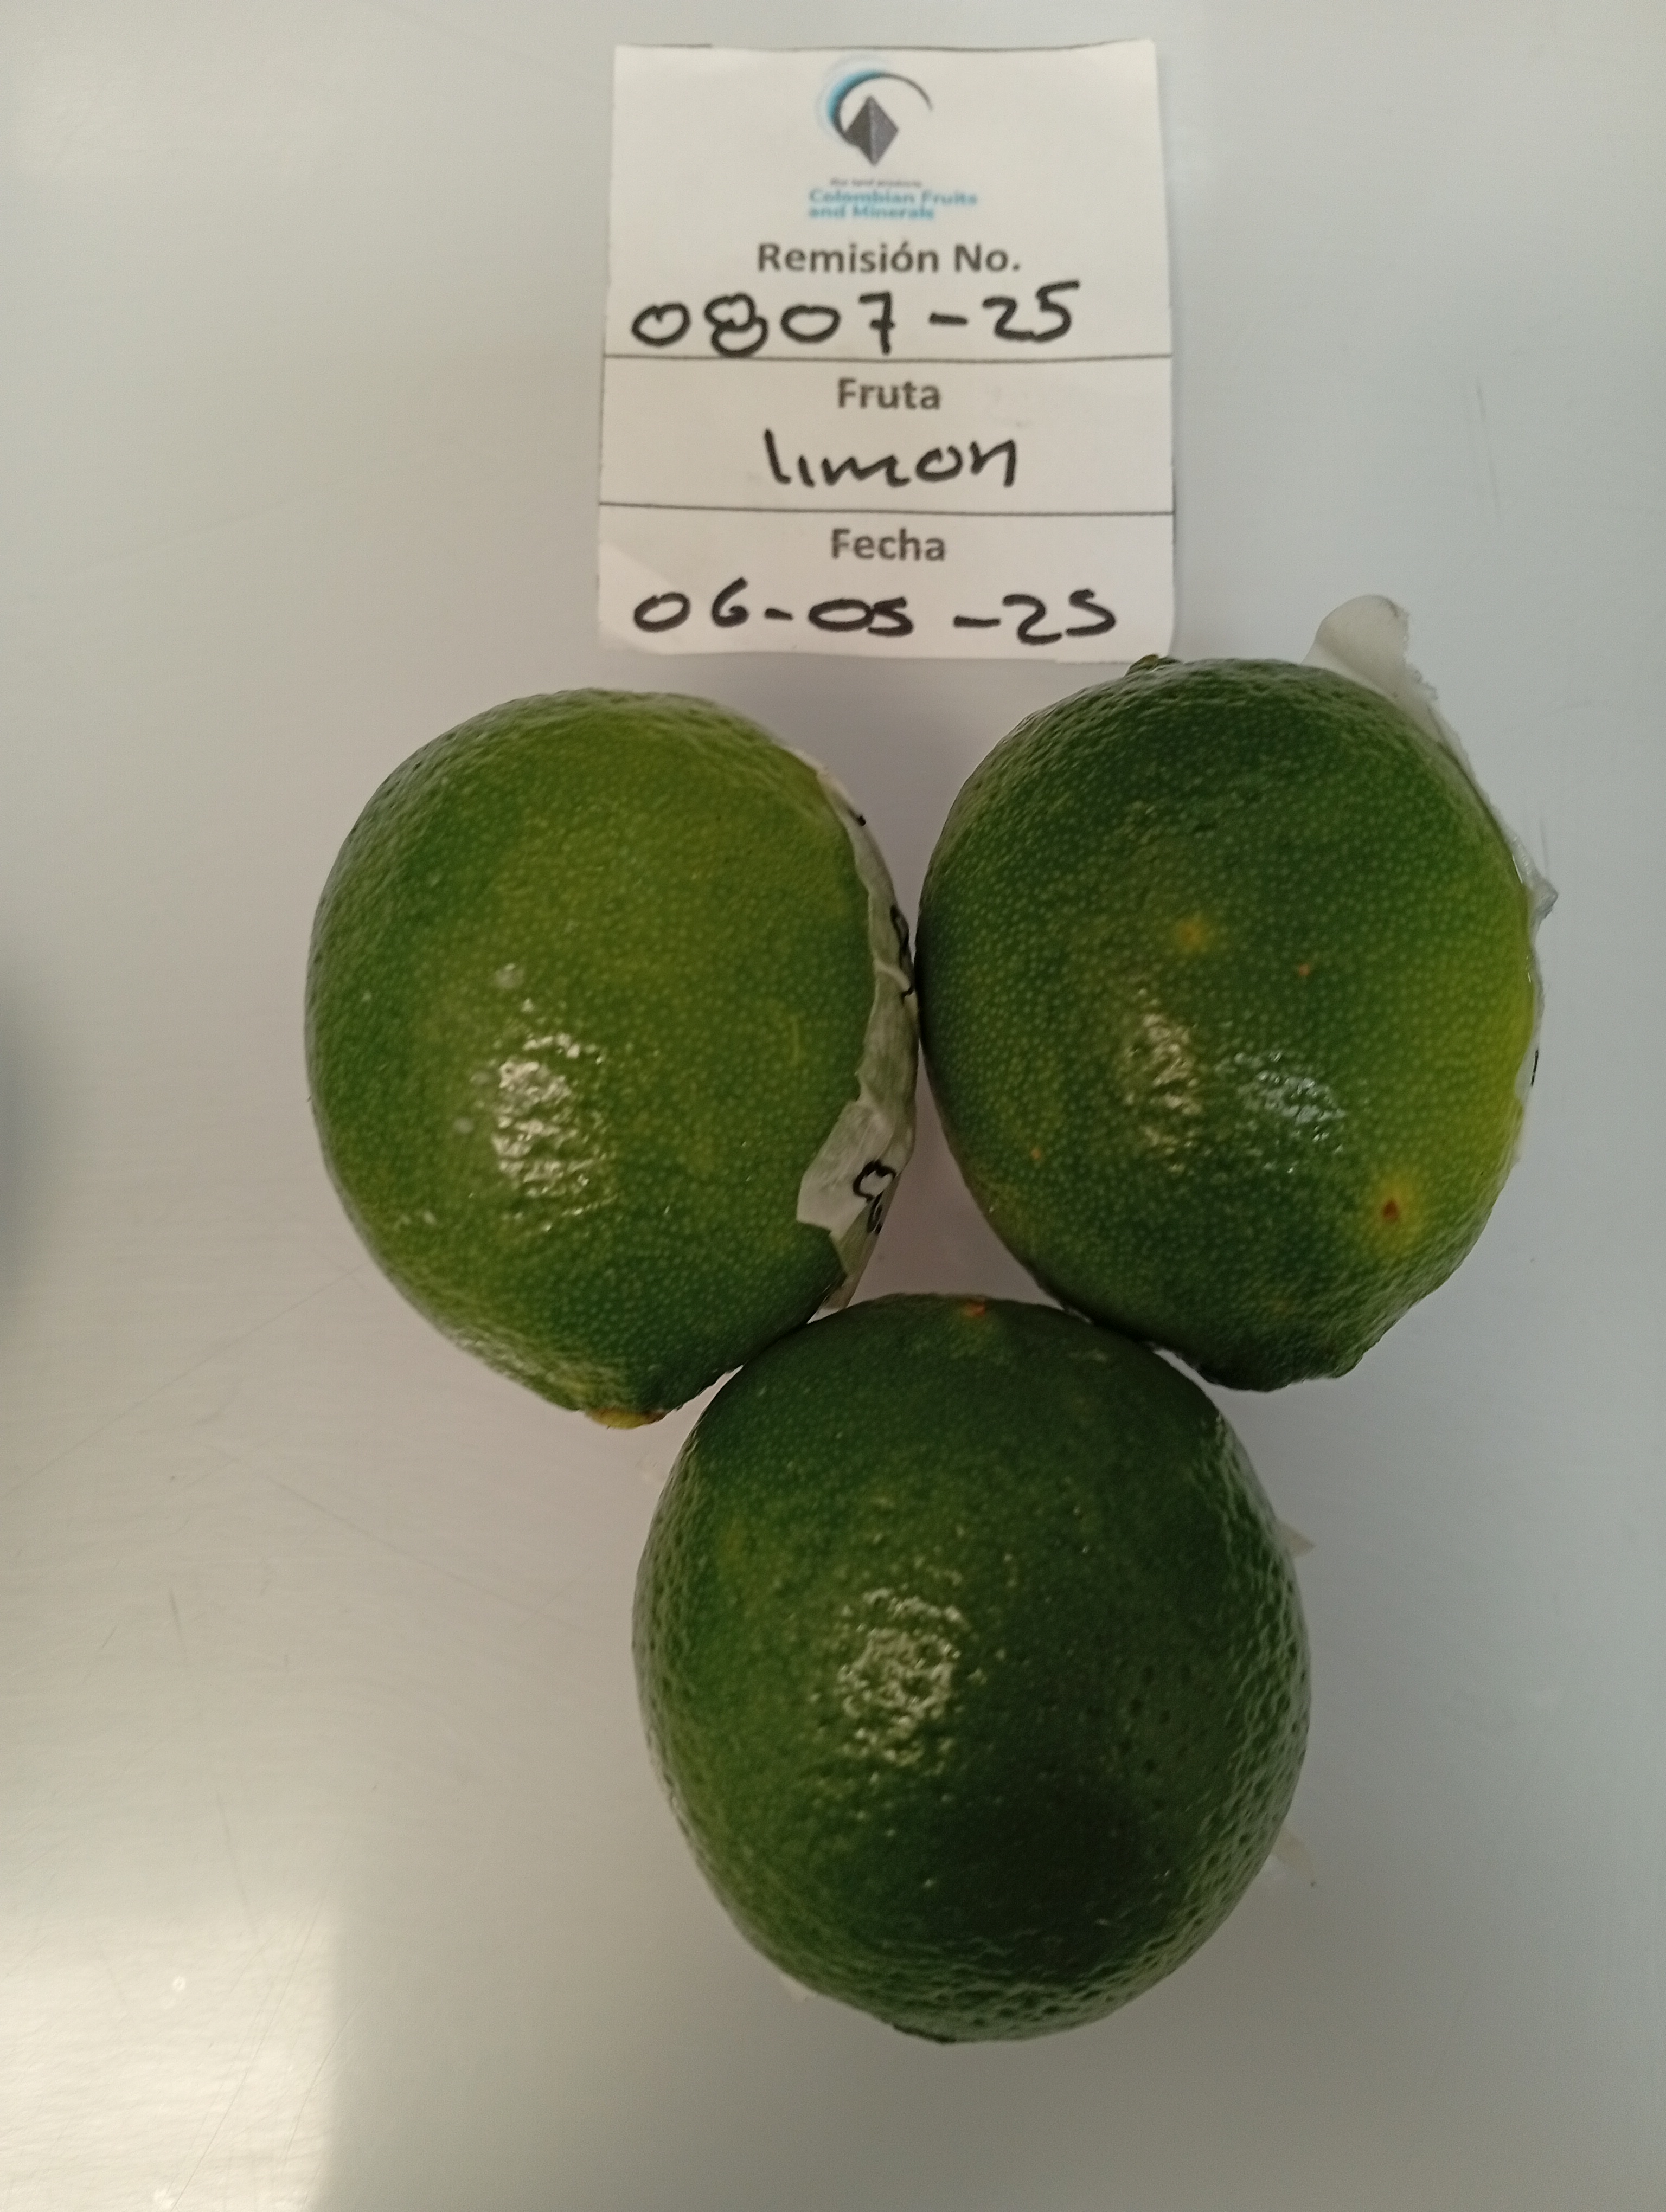 Colombian Fruits
and Minerals
Remisión No.
0807-25
Fruta
limon
Fecha
06-05-25